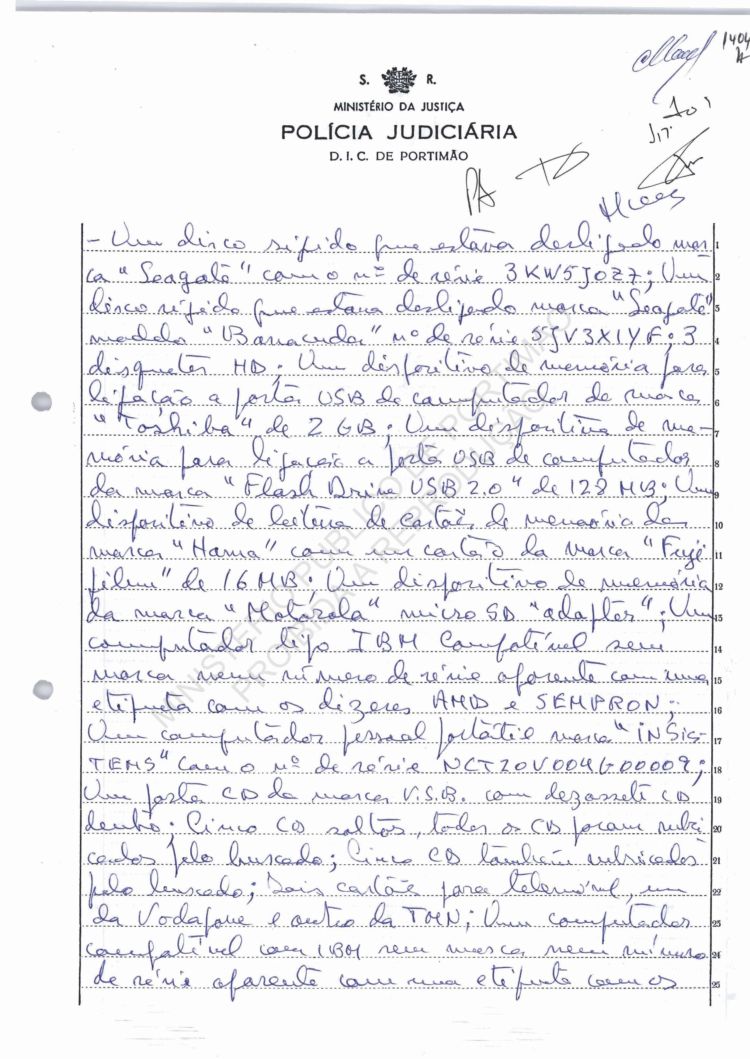 1404
S. R.
MINISTÉRIO DA JUSTIÇA
POLÍCIA JUDICIÁRIA
D. I. C. DE PORTIMÃO
- Um disco rígido que estava desligado mar- 1
ca "Seagate" com o nº de série 3KW5J0Z7; Um 2
disco rígido que estava desligado marca "Seagate" 3
modelo "Barracuda" nº de série 5JV3X1YF; 3 4
disquetes HD; Um dispositivo de memória para 5
ligação a porta USB de computador de marca 6
"Toshiba" de 2 GB; Um dispositivo de me- 7
mória para ligação a porta USB de computador 8
da marca "Flash Drive USB 2.0" de 128 MB; Um 9
dispositivo de leitura de cartões de memória da 10
marca "Hama" com um cartão da marca "Fuji 11
film" de 16 MB; Um dispositivo de memória 12
da marca "Motorola" micro SD "adapter"; Um 13
computador tipo IBM Compatível sem 14
marca nem número de série aparente com uma 15
etiqueta com os dizeres AMD e SEMPRON; 16
Um computador pessoal portátil marca "INSIS- 17
TEMS" com o nº de série NCT20V004G00009; 18
Um porta CD da marca V.S.B. com dezassete CD 19
dentro; Cinco CD soltos, todos os CD foram rubri 20
cados pelo buscado; Cinco CD também rubricados 21
pelo buscado; Dois cartões para telemóvel, um 22
da Vodafone e outro da TMN; Um computador 23
compatível com IBM sem marca nem número 24
de série aparente com uma etiqueta com os 25
MINISTÉRIO PÚBLICO DE PORTIMÃO
PROIBIDA A REPRODUÇÃO